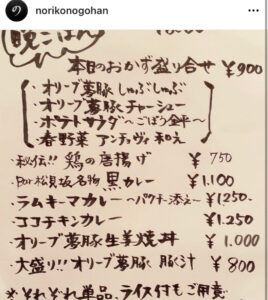 の norikonogohan
晩ごはん
本日のおかず盛り合せ ¥900
・オリーブ夢豚しゃぶしゃぶ
・オリーブ夢豚チャーシュー
・ポテトサラダ〜ごぼう金平〜
・春野菜アンチョヴィ和え
・秘伝!! 鶏の唐揚げ ¥750
・松見坂名物 黒カレー ¥1,100
・ラムキーマカレー〜パクチー添え〜 ¥1250-
・ココチキンカレー ¥1.250
・オリーブ夢豚生姜焼丼 ¥1.000
・大盛り!! オリーブ夢豚 豚汁 ¥800
※それぞれ単品、ライス付もご用意